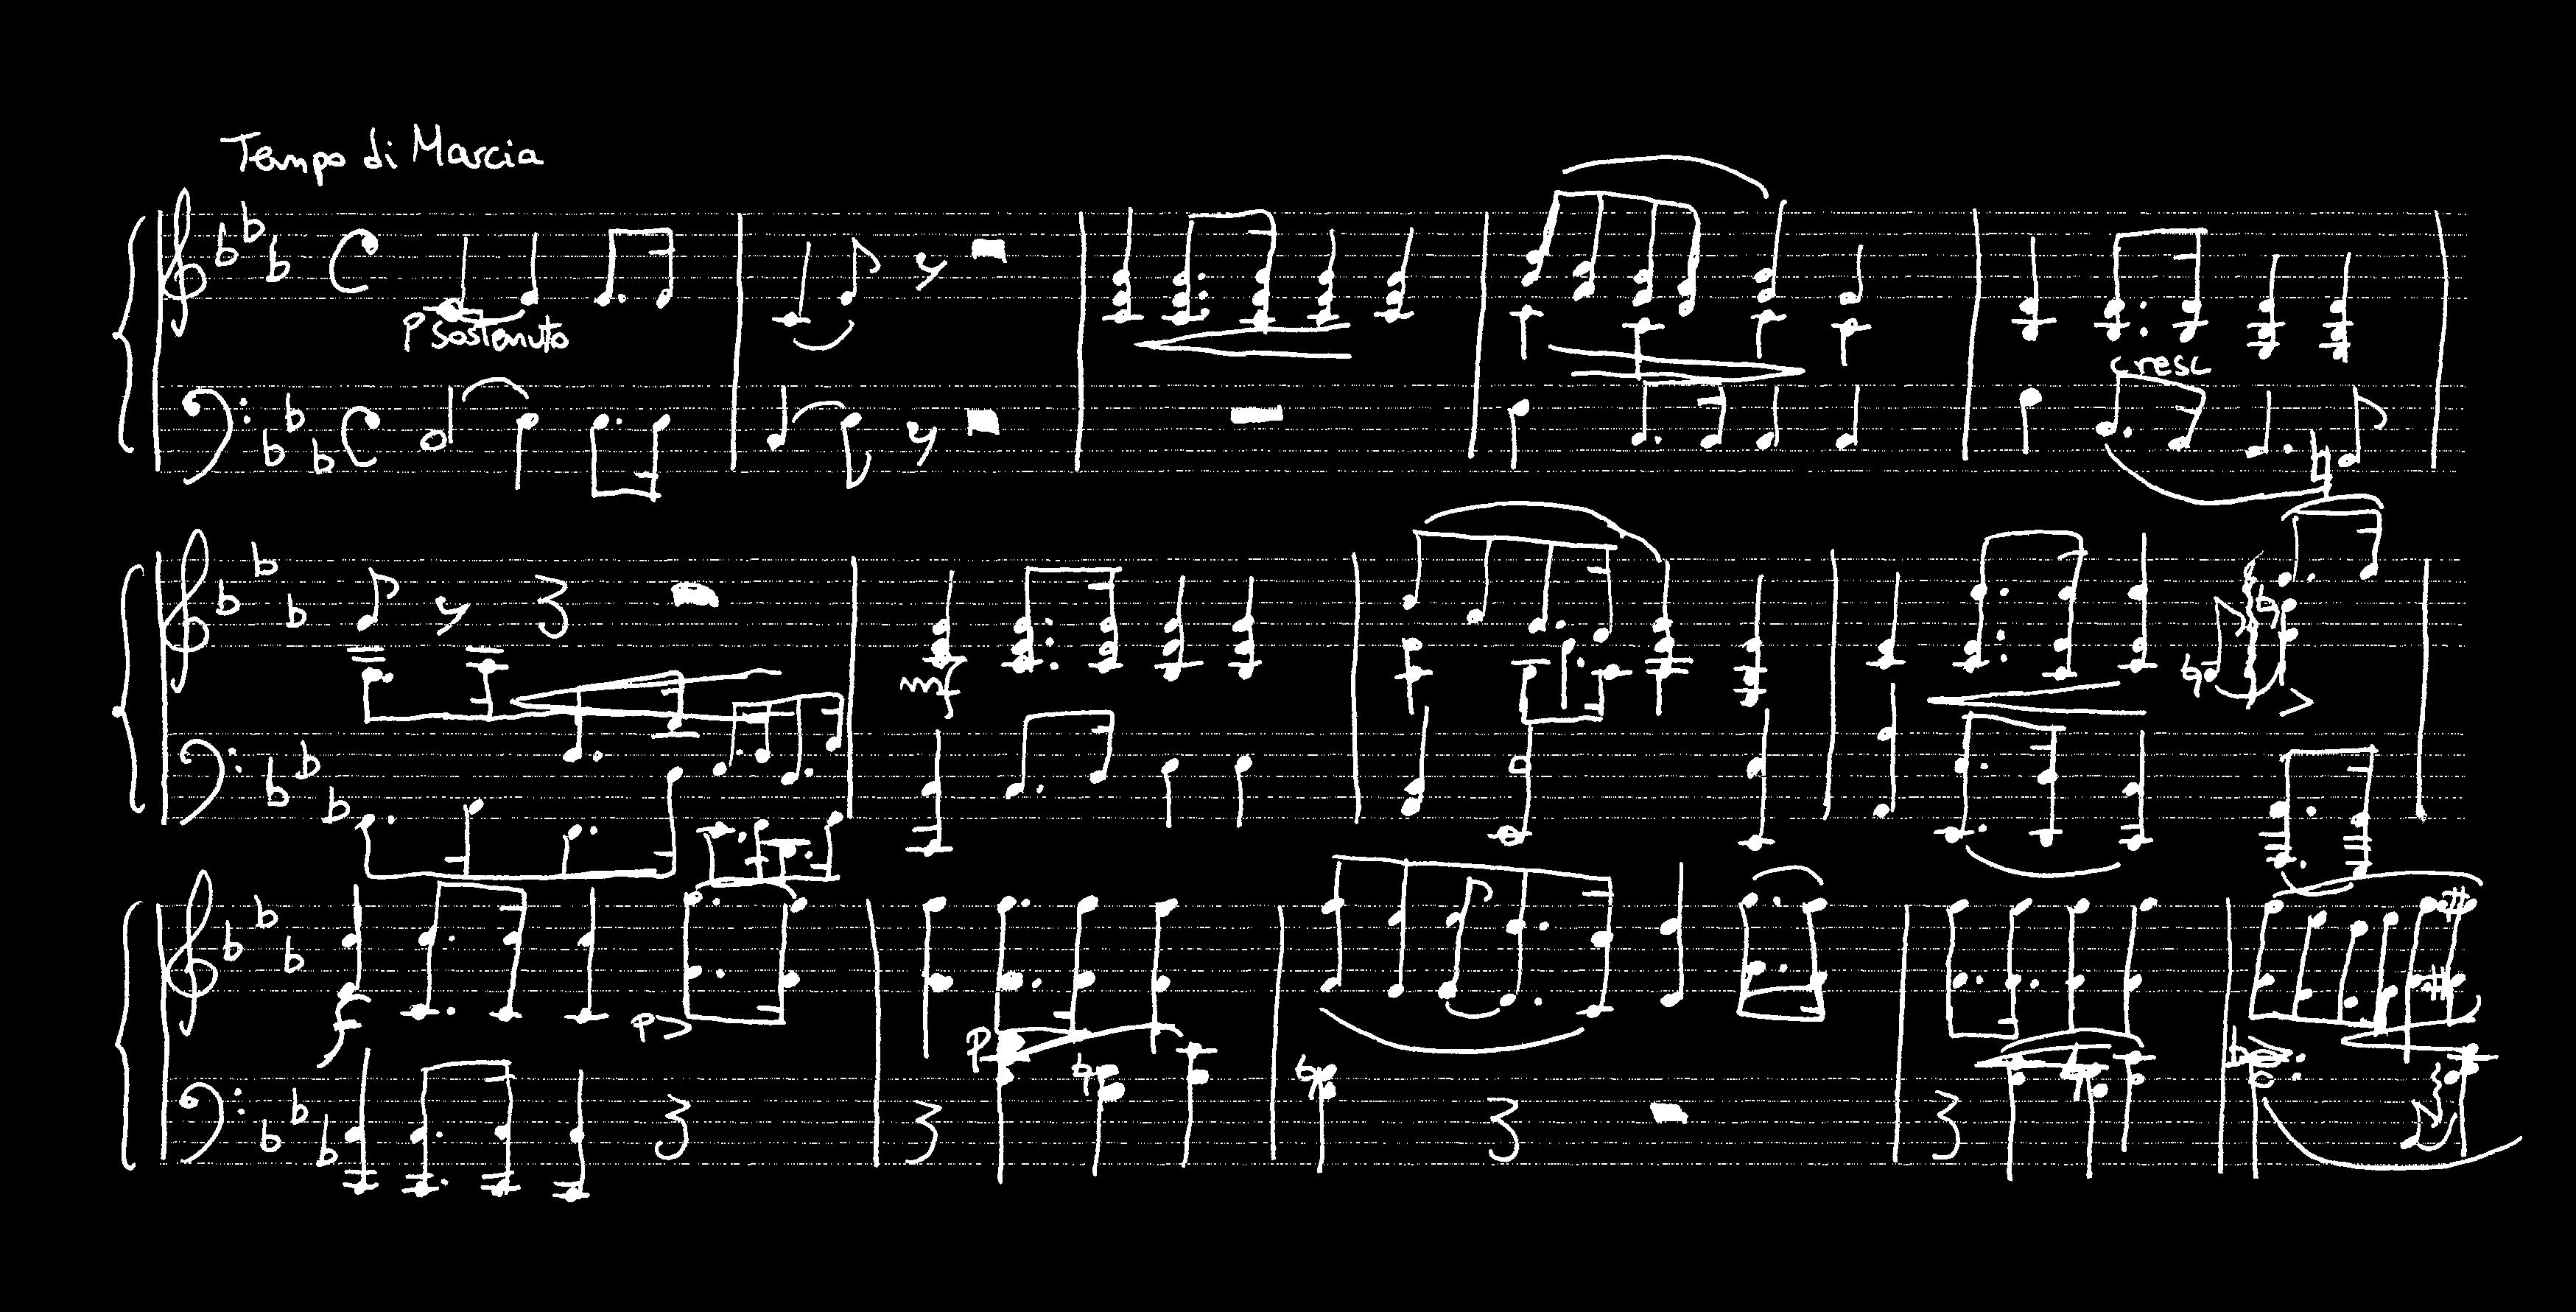 Tempo di Marcia
P Sostenuto
cresc
mf
f
p
p